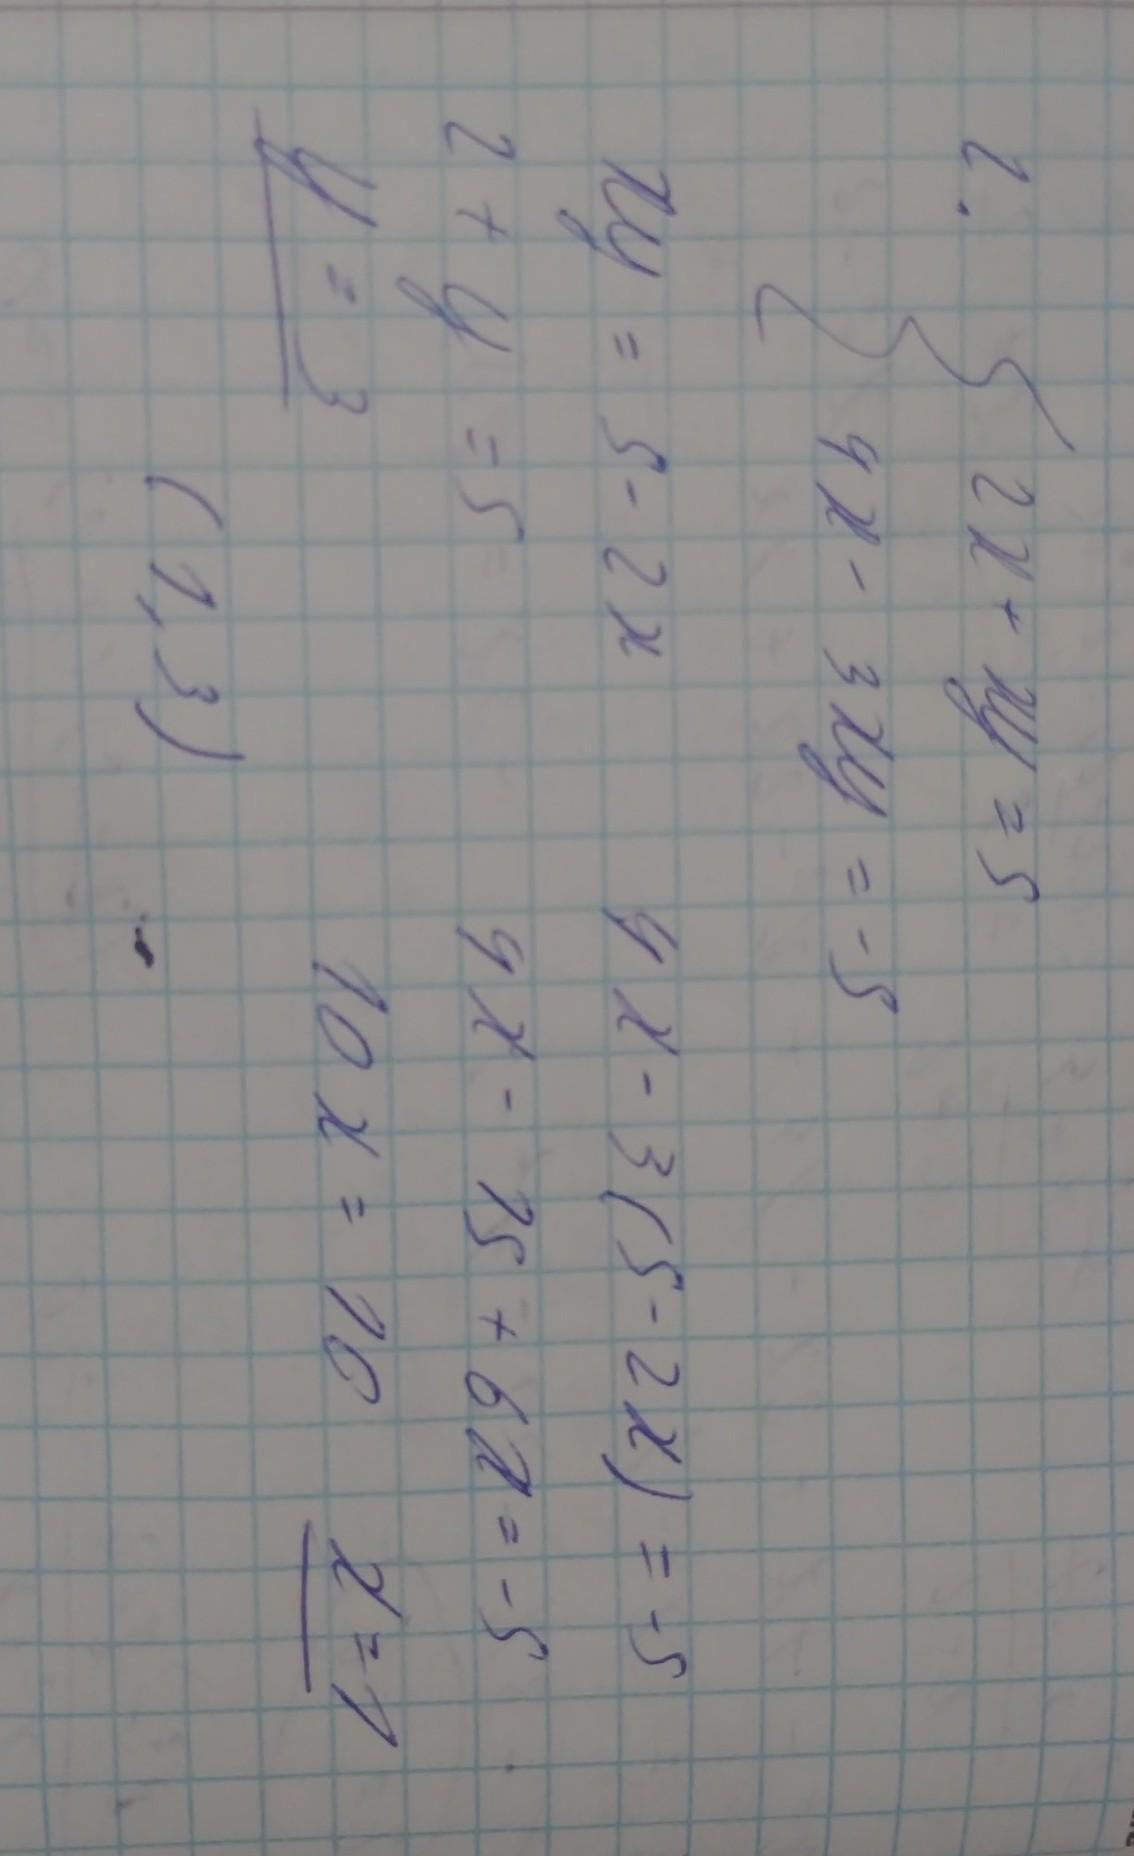 2.
2x + xy = 5
4x - 3xy = -5
xy = 5 - 2x
4x - 3(5 - 2x) = -5
2 + y = 5
4x - 15 + 6x = -5
y = 3
10x = 10 x = 1
(1,3)